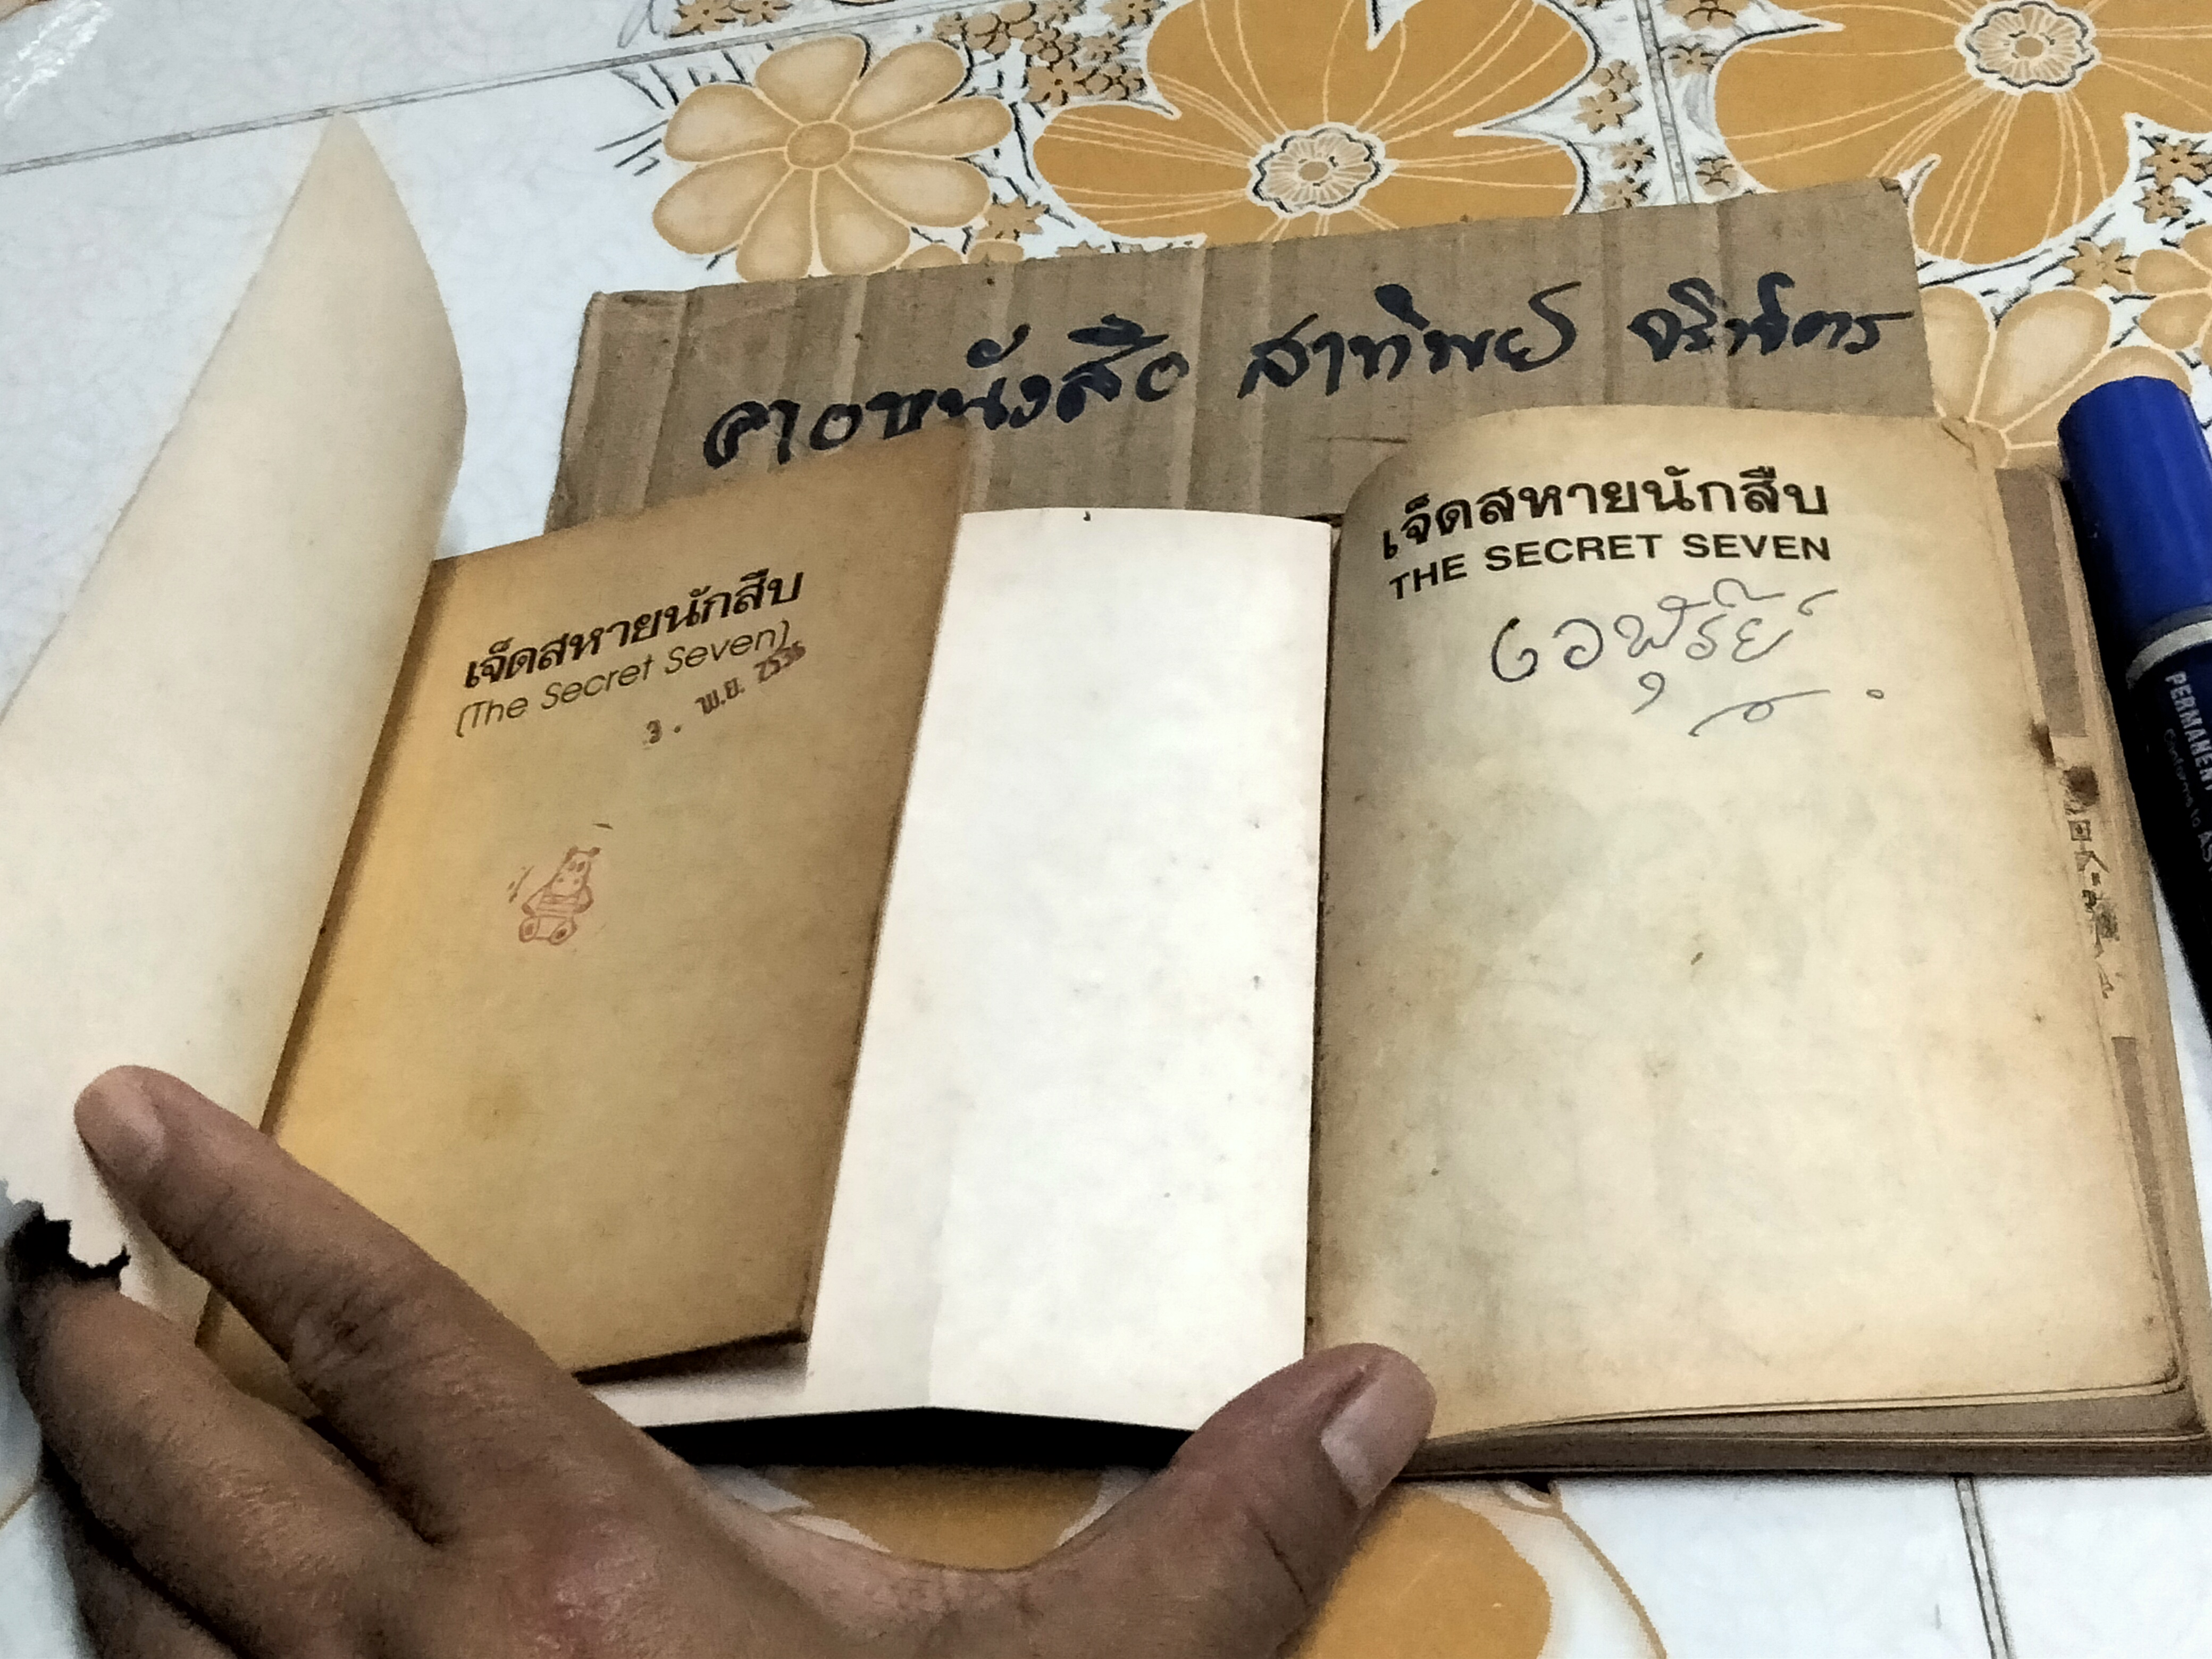 คาอหนังสือ สาทิพย์
เจ็ดสหายนักสืบ
(The Secret Seven)
3. พ.ย. 2536
เจ็ดสหายนักสืบ
THE SECRET SEVEN
PERMANENT